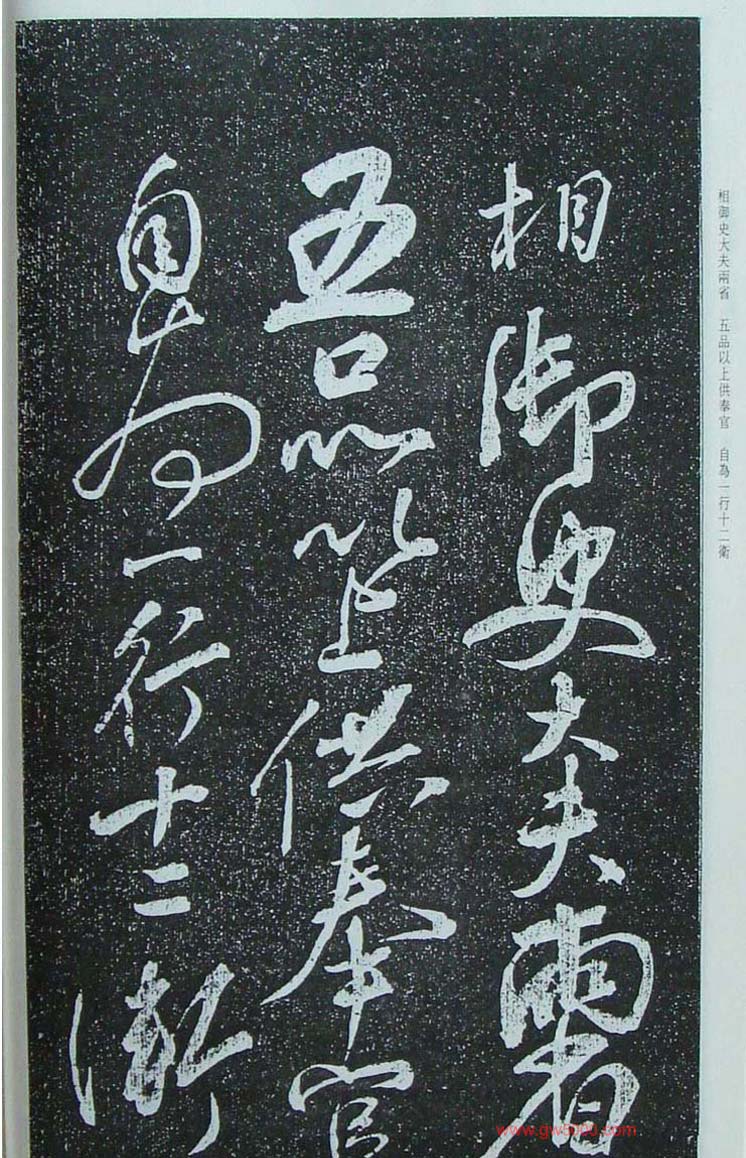 相御史大夫兩省
五品以上供奉官
自為一行十二衛
相御史大夫兩省 五品以上供奉官 自為一行十二衛
www.gw5000.com